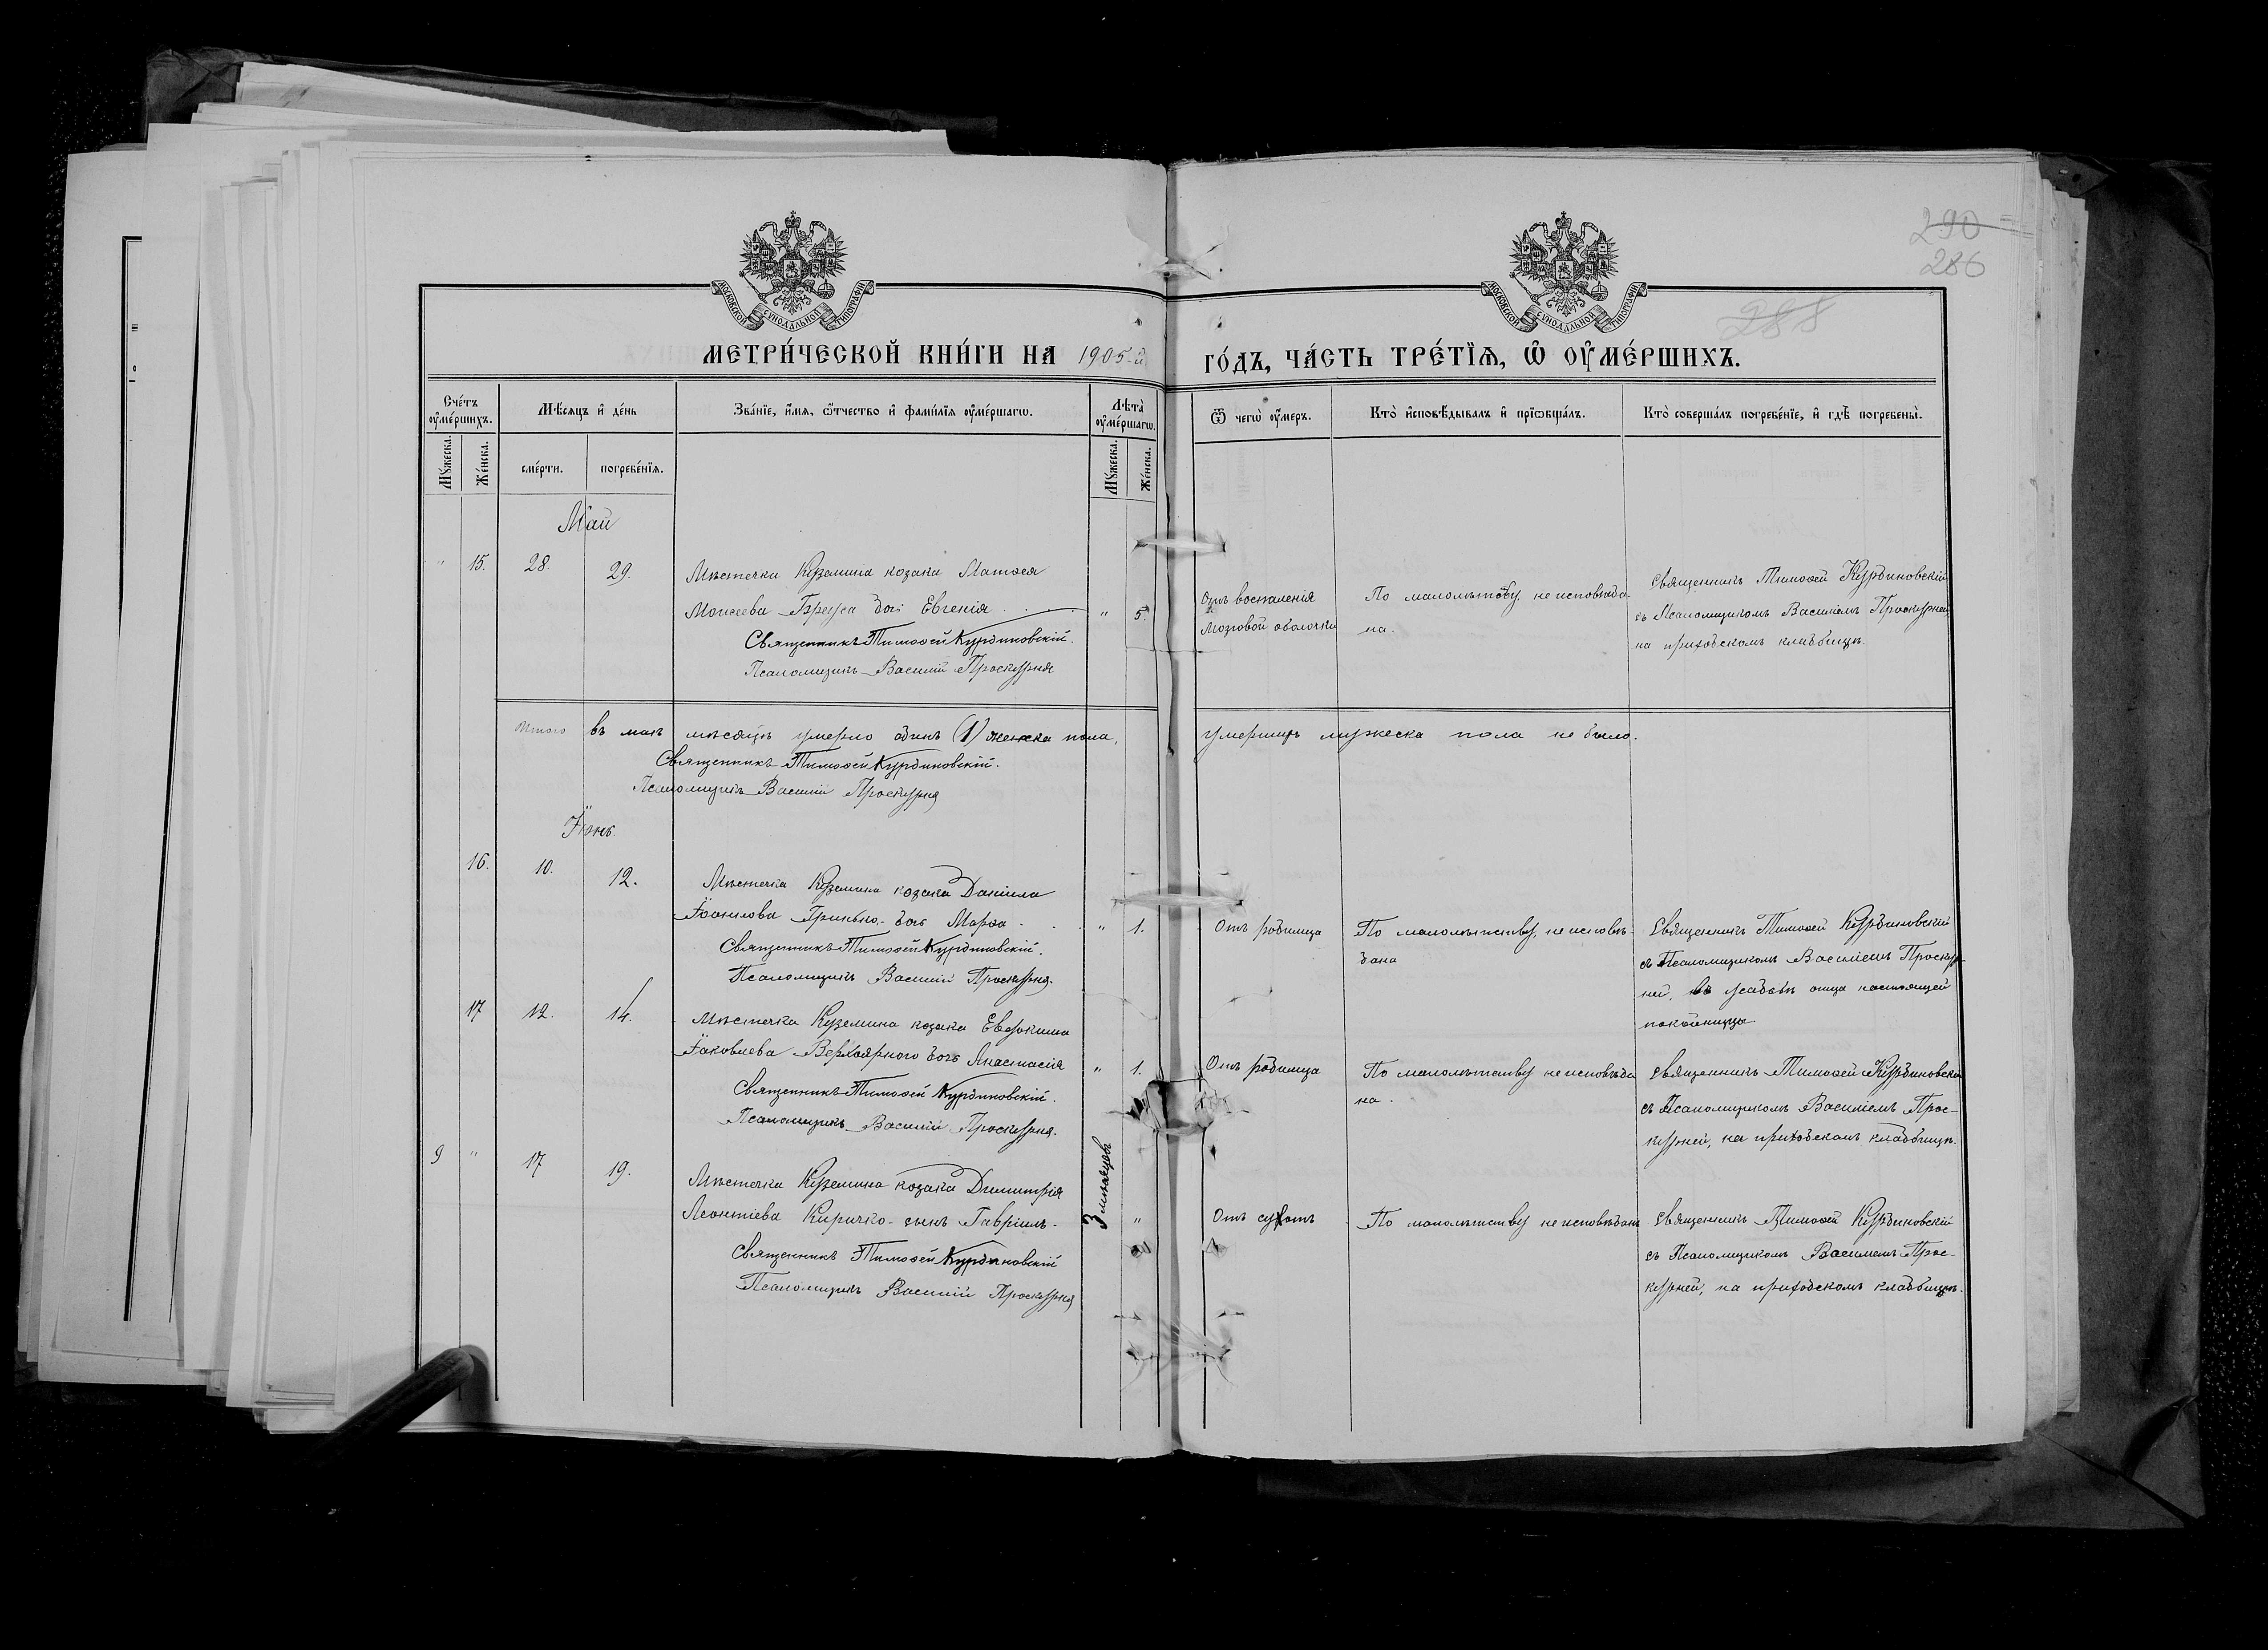 290
286
288
МОСКОВСКОЙ СѴНОДАЛЬНОЙ ТИПОГРАФІИ
МОСКОВСКОЙ СѴНОДАЛЬНОЙ ТИПОГРАФІИ
МЕТРИ́ЧЕСКОЙ КНИ́ГИ НА 1905-й
ГО́ДЪ, ЧА́СТЬ ТРЕ́ТЇѦ, Ѡ҆ ОУ҆МЕ́РШИХЪ.
Сче́тъ оу҆ме́ршихъ.
Мꙋ́жеска.
Же́нска.
Мѣ́сяцъ и҆ де́нь
сме́рти.
погребе́нїѧ.
Зва́нїе, и҆́мѧ, ѻ҆́тчество и҆ фами́лїѧ оу҆ме́ршагѡ.
Лѣта̀ оу҆ме́ршагѡ.
Мꙋ́жеска.
Же́нска.
Ѿ чегѡ̀ оу҆́меръ.
Кто̀ и҆сповѣ́дывалъ и҆ прїѡбща́лъ.
Кто̀ соверша́лъ погребе́нїе, и҆ гдѣ̀ погребены̀.
Май
" 15. 28. 29. Мѣстечка Куземина козака Матѳея
Моисеева дочь Евгенія " 5.
Священникъ Тимоѳей Курдиновскій.
Псаломщикъ Василій Проскурня
Отъ воспаленія
мозговой оболочки
По малолѣтству, не исповѣда-
на.
Священникъ Тимоѳей Курдиновскій
съ Псаломщикомъ Василіемъ Проскурней,
на приходскомъ кладбищѣ.
Итого въ маѣ мѣсяцѣ умерло одинъ (1) женска пола,
умершихъ мужеска пола не было.
Священникъ Тимоѳей Курдиновскій.
Псаломщикъ Василій Проскурня
Іюнь.
16. 10. 12. Мѣстечка Куземина козака Даніила
Гринько дочь Марѳа " 1.
Священникъ Тимоѳей Курдиновскій.
Псаломщикъ Василій Проскурня.
Отъ родимца
По малолѣтству, не исповѣ-
дана
Священникъ Тимоѳей Курдиновскій
съ Псаломщикомъ Василіемъ Проскур-
ней, въ усадьбѣ отца настоящей
покойницы
17 12. 14. Мѣстечка Куземина козака Евдокима
Іаковлева Верхоярного дочь Анастасія " 1.
Священникъ Тимоѳей Курдиновскій.
Псаломщикъ Василій Проскурня.
Отъ родимца
По малолѣтству не исповѣда
на.
Священникъ Тимоѳей Курдиновскій
съ Псаломщикомъ Василіемъ Прос-
курней, на приходскомъ кладбищѣ.
9 " 17 19. Мѣстечка Куземина козака Димитрія
Леонтіева Киричко сынъ Гавріилъ 3 мѣсяцевъ "
Священникъ Тимоѳей Курдиновскій
Псаломщикъ Василій Проскурня
Отъ сухотъ
По малолѣтству не исповѣданъ
Священникъ Тимоѳей Курдиновскій
съ Псаломщикомъ Василіемъ Прос-
курней, на приходскомъ кладбищѣ.